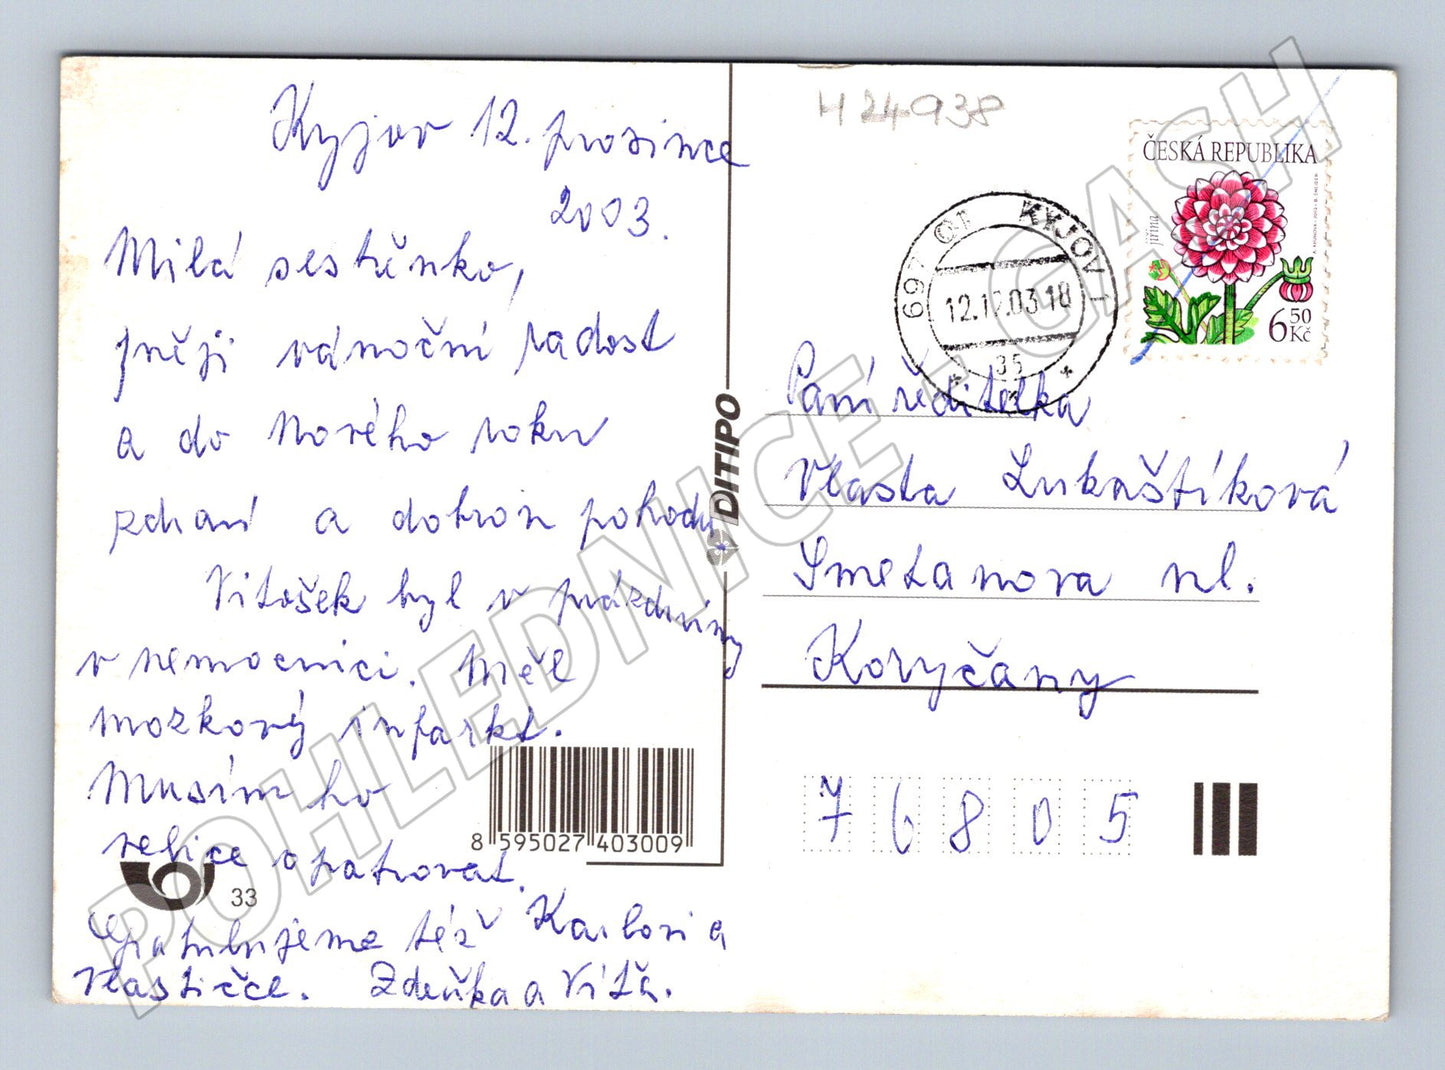 Kyjov 12. prosince
2003.
Milá sestřenko,
přeji vánoční radost
a do Nového roku
zdraví a dobrou pohodu
Vítošek byl v prázdniny
v nemocnici. Měl
mozkový infarkt.
Musím ho
velice opatrovat.
Gratulujeme též Karlovi a
Vlastičce. Zdeňka a Víťa.
33
8 595027 403009
DITIPO
H 24938
697 01 KYJOV 1
12.12.03 18
35
ČESKÁ REPUBLIKA
jiřina
6 50 Kč
Paní ředitelka
Vlasta Lukaštíková
Smetanova ul.
Koryčany
76805
POHLEDNICE - GASH